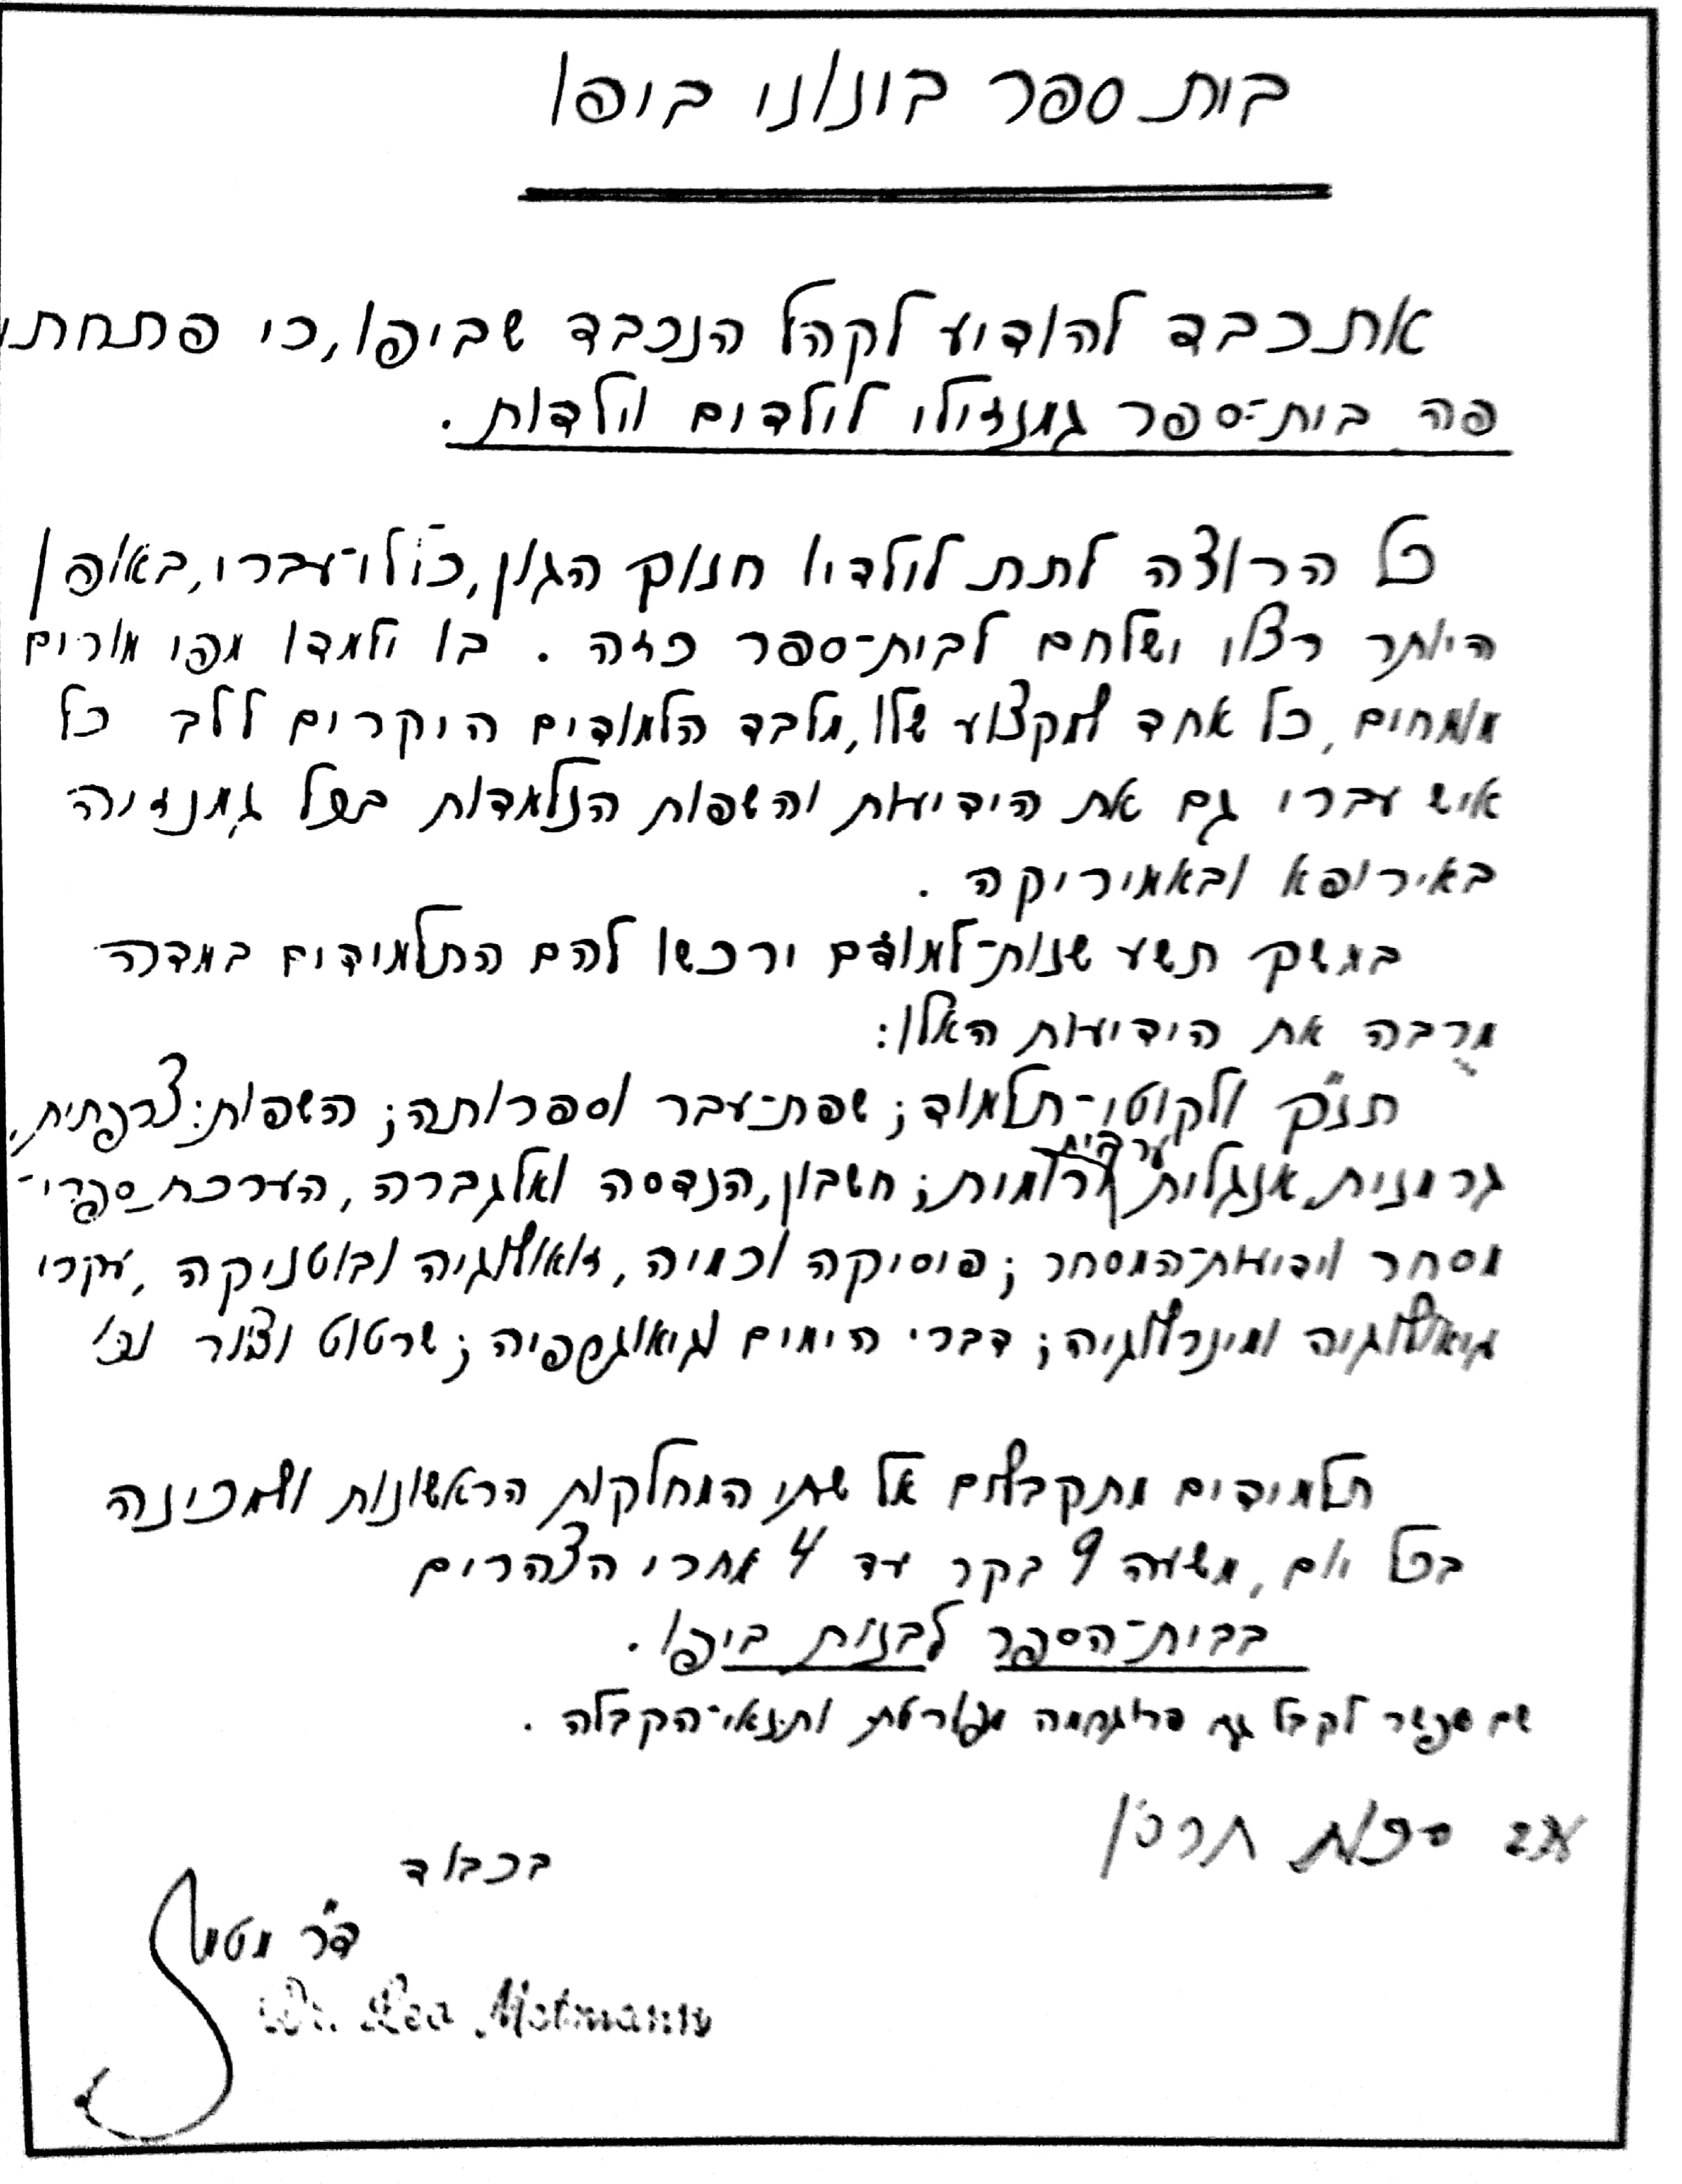 בית ספר בינוני ביפו
אתכבד להודיע לקהל הנכבד שביפו, כי פתחתי
פה בית-ספר גמנזילי לילדים וילדות.
כל הרוצה לתת לילדיו חנוך הגון, כללי-עברי, באופן
היותר רצוי ישלחם לבית-ספר כזה. בו ילמדו מפי מורים
מומחים, כל אחד למקצוע שלו, מלבד הלמודים היקרים ללב כל
איש עברי גם את הידיעות והשפות הנלמדות בכל גמנזיה
באירופא ובאמיריקה.
במשך תשע שנות-למודם ירכשו להם התלמידים במדה
מרבה את הידיעות האלו:
תנ"ך ולקוטי-תלמוד; שפת-עבר וספרותה; השפות: צרפתית,
גרמנית, אנגלית, ערבית ורומית; חשבון, הנדסה ואלגברה, הערכת ספרי-
מסחר וידיעת-המסחר; פיסיקה וכמיה, זואולוגיה ובוטניקה, עקרי
גיאולוגיה ומינרלוגיה; דברי הימים וגיאוגרפיה; שרטוט וציור וכו'
תלמידים מתקבלים אל שתי המחלקות הראשונות ולמכינה
בכל יום, משעה 9 בקר עד 4 אחרי הצהרים
בבית-הספר לבנות ביפו.
שם אפשר לקבל גם פרוגרמה מפורטת ותנאי-הקבלה.
סכות תרס"ו
בכבוד
ד"ר מטמן
Dr. Leo Motmann